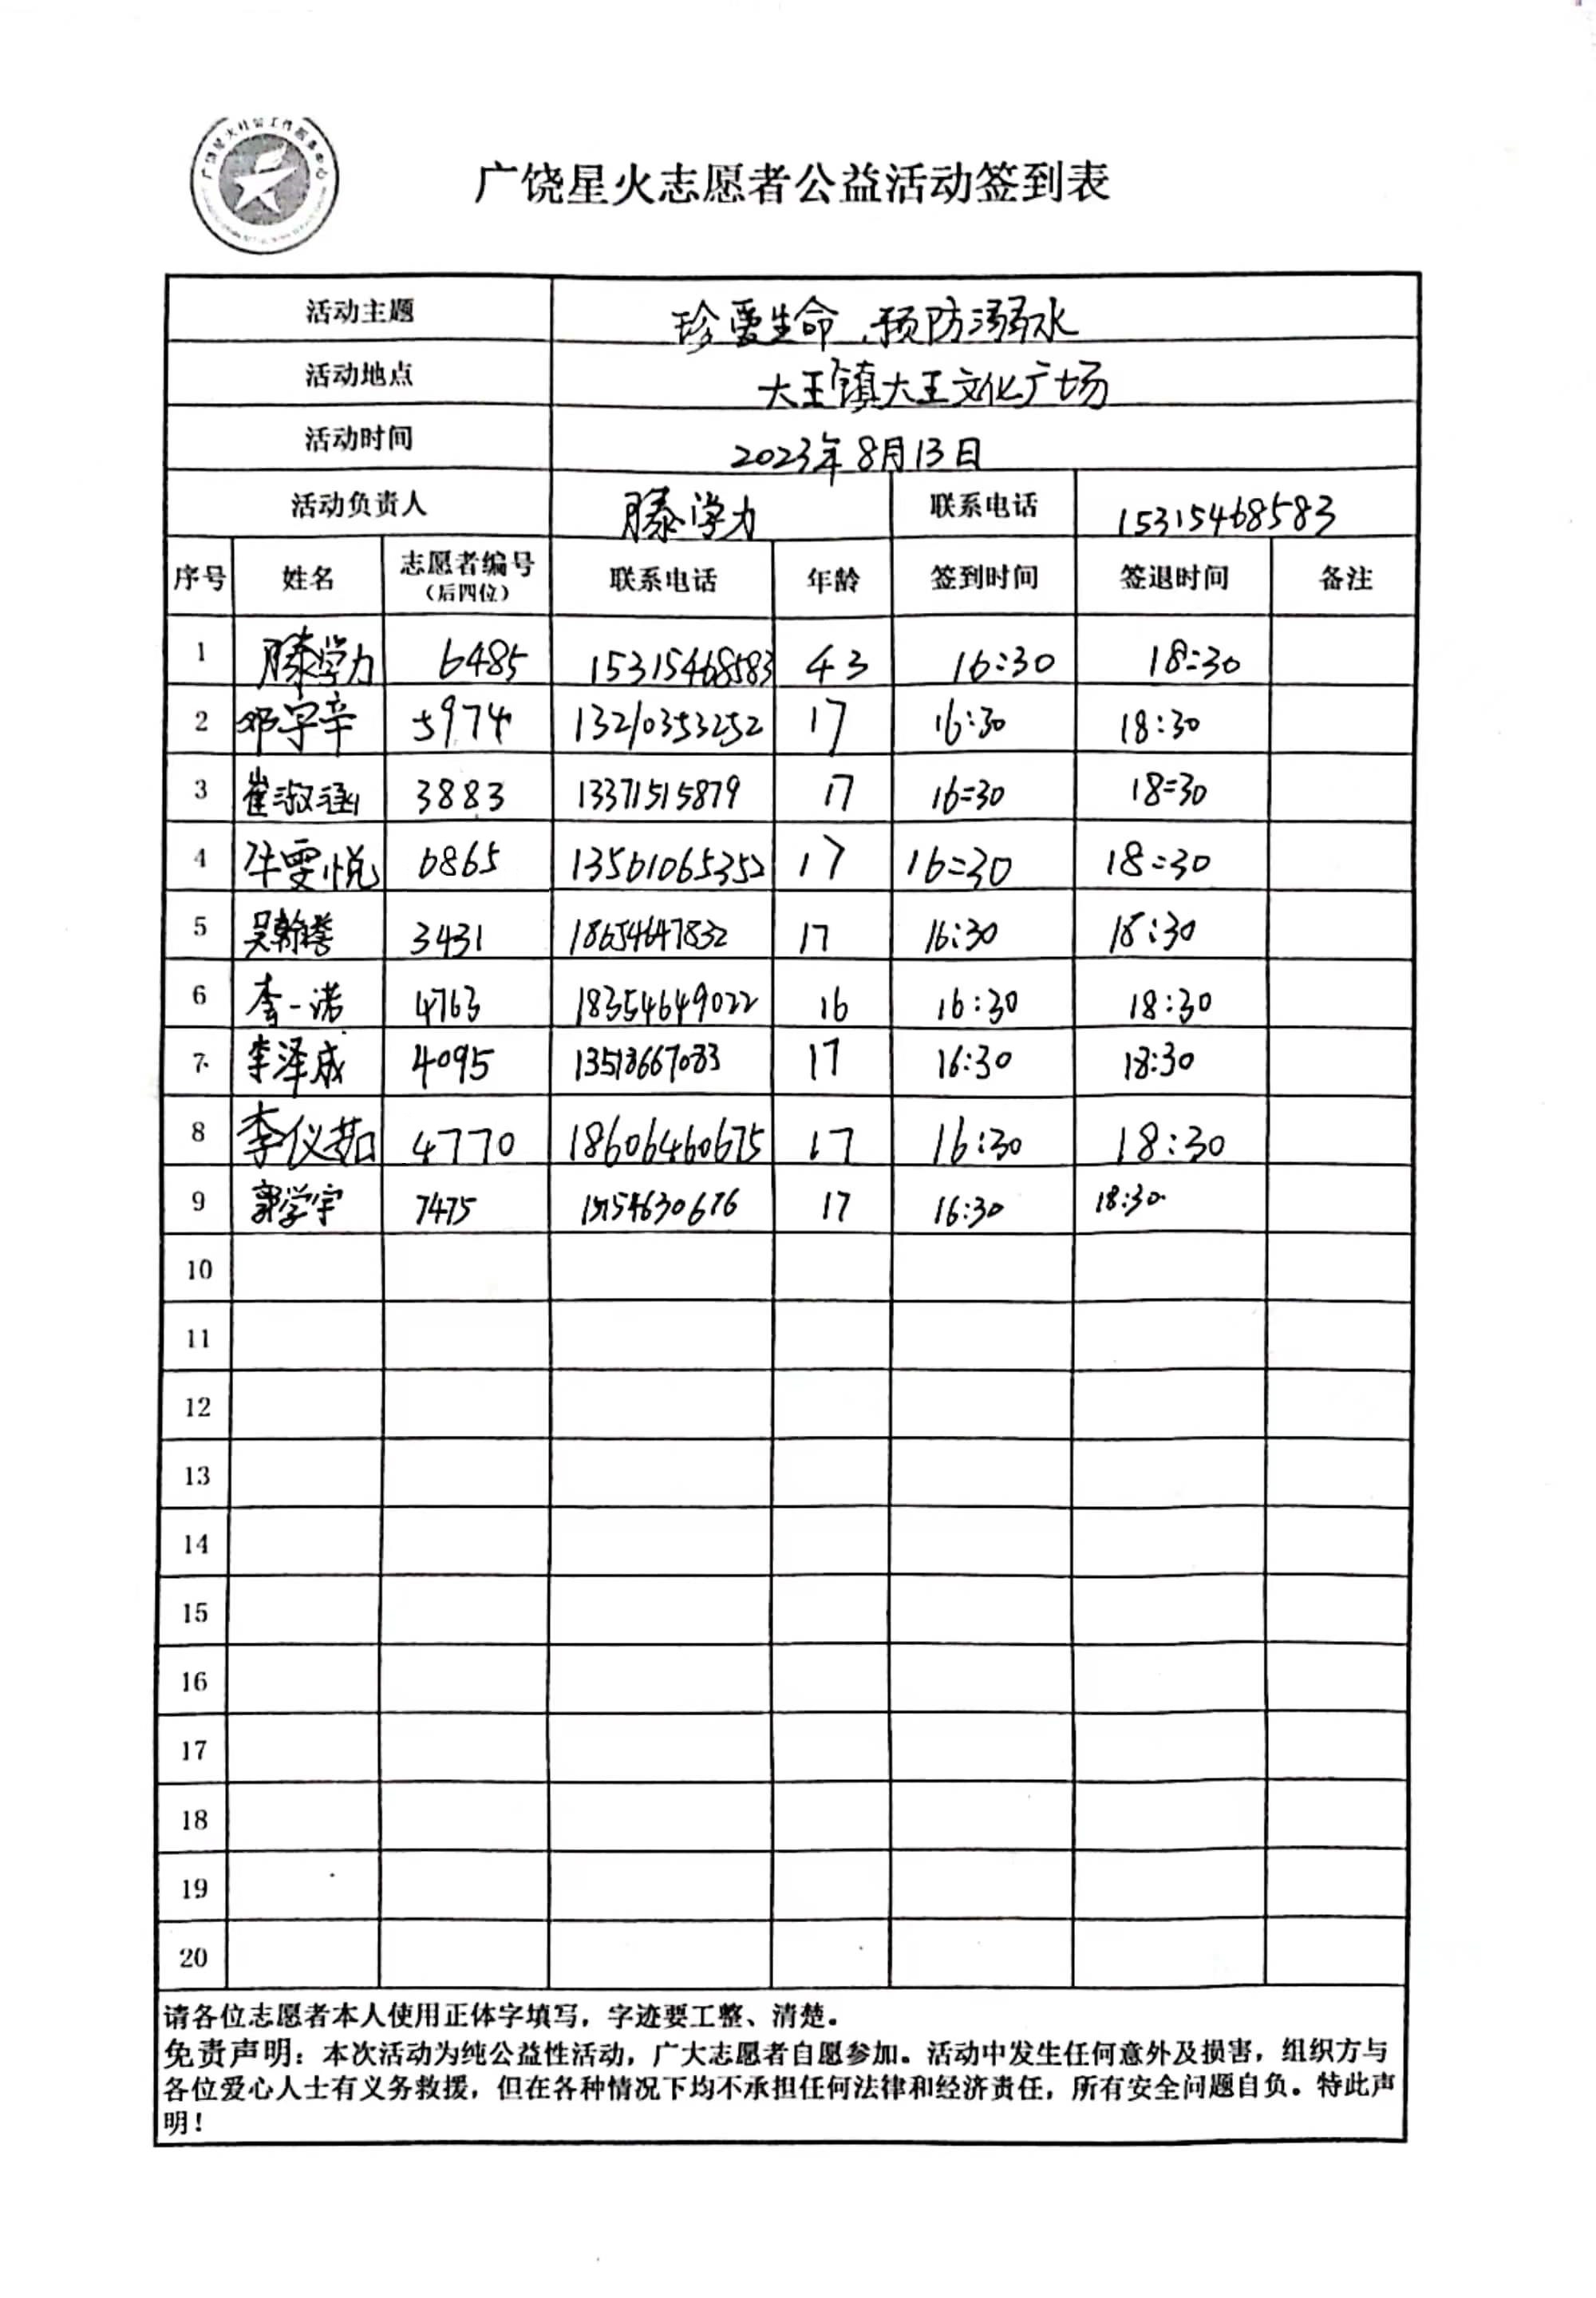 广饶星火社会工作服务中心
广饶星火志愿者公益活动签到表
活动主题 珍爱生命,预防溺水
活动地点 大王镇大王文化广场
活动时间 2023年8月13日
活动负责人 滕学力 联系电话 15315468583
序号 姓名 志愿者编号（后四位） 联系电话 年龄 签到时间 签退时间 备注
1 滕学力 6485 15315468583 43 16:30 18:30
2 邓宇辛 5974 13210353252 17 16:30 18:30
3 崔淑涵 3883 13371515879 17 16:30 18:30
4 牛雯悦 6865 13561065352 17 16:30 18:30
5 吴翰誉 3431 18654647832 17 16:30 18:30
6 李一诺 4763 18354649022 16 16:30 18:30
7 李泽成 4095 17 16:30 18:30
8 李仪茹 4770 18606460675 17 16:30 18:30
9 郭学宇 7475 17 16:30 18:30
10
11
12
13
14
15
16
17
18
19
20
请各位志愿者本人使用正体字填写，字迹要工整、清楚。
免责声明：本次活动为纯公益性活动，广大志愿者自愿参加。活动中发生任何意外及损害，组织方与
各位爱心人士有义务救援，但在各种情况下均不承担任何法律和经济责任，所有安全问题自负。特此声
明！